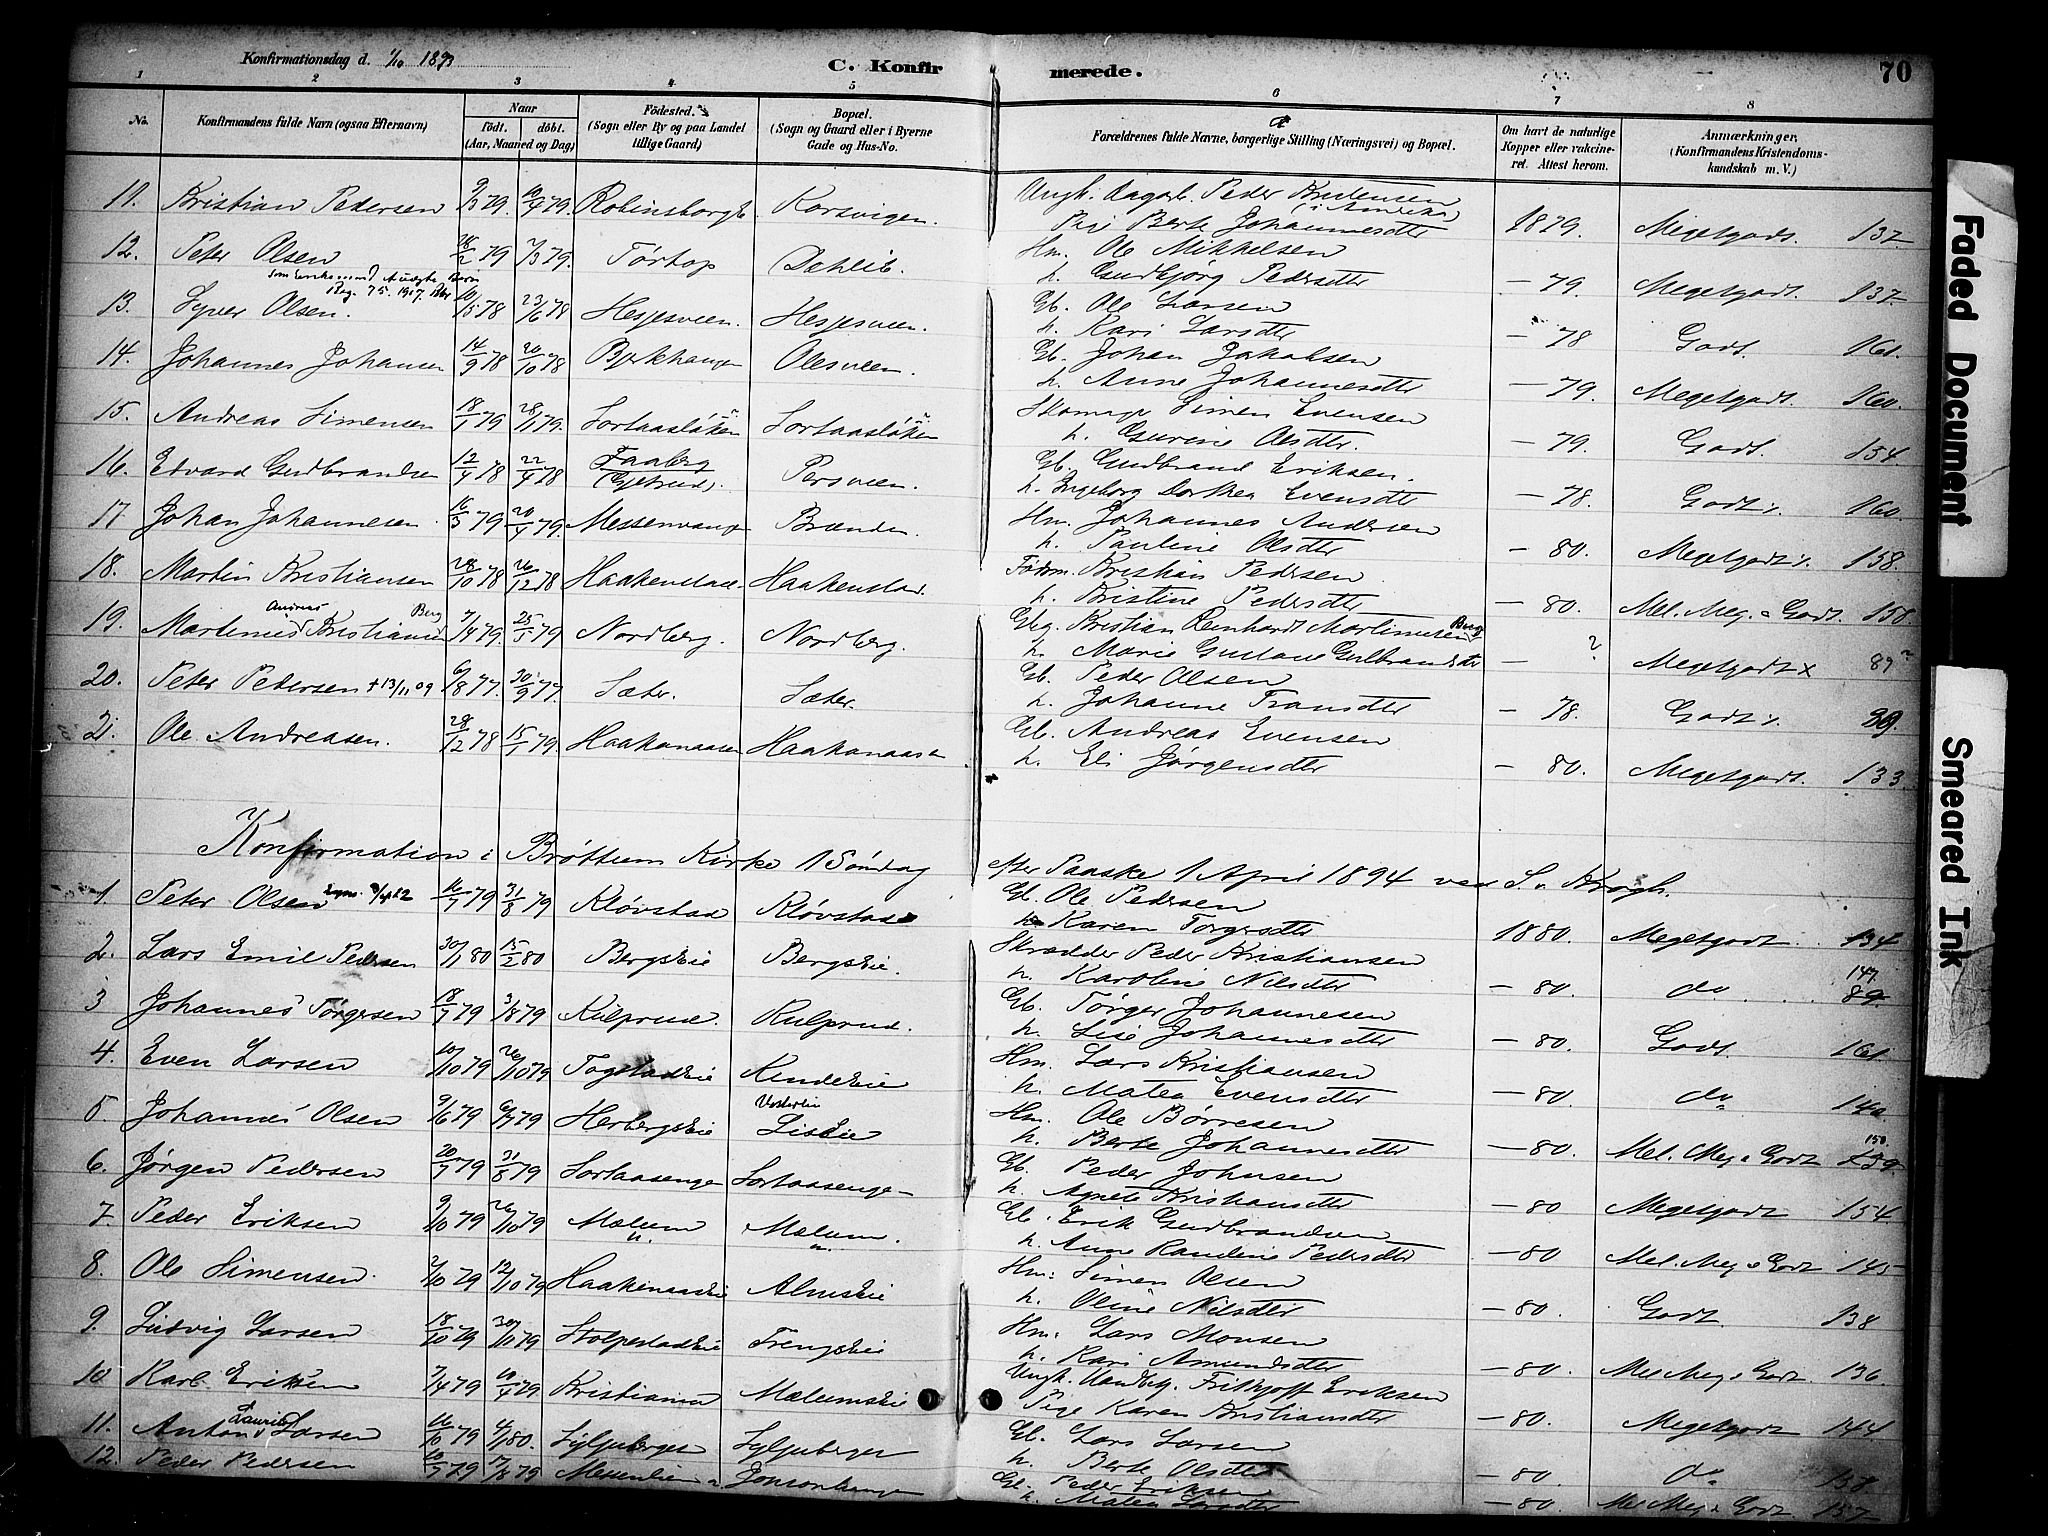 Konfirmationsdag d. 1/10 1893
C. Konfir merede. 70
1 2 3 4 5 6 7 8
No. Konfirmandens fulde Navn (ogsaa Efternavn) Naar Født. døbt. (Aar, Maaned og Dag) Fødested. (Sogn eller By og paa Landet tillige Gaard) Bopæl. (Sogn og Gaard eller i Byerne Gade og Hus-No. Forældrenes fulde Navne, borgerlige Stilling (Næringsvei) og Bopæl. Om havt de naturlige Kopper eller vakcineret. Attest herom. Anmærkninger, (Konfirmandens Kristendomskundskab m. V.)
11. Kristian Pedersen 9/3 79. 10/4 79. Robinsborgk Korsvigen. Ungk. Dagarb. Peder Knutensen (i Amerika)
Pige Berte Johannesdtr 1879. Megetgodt. 137
12. Peter Olsen 28/2 79 7/3 79. Tørtop Dehlie. Hm. Ole Mikkelsen
h. Gudbjørg Pedersdtr — 79. Megetgodt. 137
Pag. 75. 1917.
13. Syver Olsen. 10/5 78 23/6 78 Hesjesveen. Hesjesveen. Gb. Ole Larsen
h. Kari Larsdtr — 78 Godt. 161.
14. Johannes Johansen 14/9 78 20/10 78 Bjerkhaugen Olesveen. Gb. Johan Jakobsen
h. Anne Johannesdtr — 79. Megetgodt. 160.
15. Andreas Simensen 18/1 79 28/1 79. Sortaasløkken Sortaasløkken Skomager Simen Evensen
h. Gurine Olsdtr. — 79. Godt. 154.
16. Edvard Gudbrandsen 12/4 78 22/4 78 Faaberg (Gjetrud). Persveen. Gb. Gudbrand Eriksen.
h. Ingeborg Dorthea Evensdtr — 78. Godt. 160.
17. Johan Johannesen 16/3 79 20/4 79. Messenvangen Brænden. Hm. Johannes Andersen
h. Pauline Olsdtr — 80. Megetgodt. 158.
18. Martin Kristiansen 28/10 78 26/12 78 Haakenstad Haakenstad. Føderm. Kristian Pedersen
h. Kristine Pedersdtr — 80. Mel. Meg. o Godt. 158.
19. Martenius Andreas Kristiansen Berg 7/4 79. 25/5 79 Nordberg. Nordberg. Gbg. Kristian Reinhardt Martinusen Berg
h. Marie Gustave Gulbrandsdtr — ? Megetgodt x 89
20. Peter Pedersen + 13/11 09 6/8 77. 30/9 77. Sæter. Sæter. Gb. Peder Olsen
h. Johanne Fransdtr — 78. Godt. 39.
21. Ole Andreasen. 28/12 78 15/1 79. Haakanaasen Haakanaasen Gb. Andreas Evensen
h. Eli Jørgensdtr — 80. Megetgodt. 133.
Konfirmation i Brøttum Kirke 1 Søndag efter Paaske 1 April 1894 ved S. v. Krogh.
1 Peter Olsen 16/7 79 31/8 79 Kløvstad Kløvstad Gb. Ole Pedersen
h. Karen Torgersdtr 1880. Megetgodt 134
2. Lars Emil Pedersen 30/1 80 15/2 80 Bergseie Bergseie. Skrædder Peder Kristiansen
h. Karoline Nilsdtr — 80. do 147. 89
3 Johannes Tørgersen 18/7 79 3/8 79 Kulprud. Kulprud. Gb. Tørger Johannesen
h. Lise Johannesdtr — 80. Godt. 161
4. Even Larsen 10/10 79 26/10 79 Fogstadeie Kindeeie Hm. Lars Kristiansen
h. Matea Evensdtr — 80. do 140.
5. Johannes Olsen 9/6 79 6/7 79 Herbergseie Liseie Hm. Ole Børresen
h. Berte Johannesdtr — 80. Mel. Meg. o Godt 150. 139
6. Jørgen Pedersen 20/7 79 31/8 79 Sortaasenge Sortaasenge Gb. Peder Johnsen
h. Agnete Kristiansdtr — 80 Megetgodt 154
7. Peder Eriksen 9/10 79 26/10 79 Mælum Mælum. Gb. Erik Gudbrandsen
h. Anne Randine Pedersdtr — 80 Mel. Meg o Godt 145
8. Ole Simensen. 2/10 79 12/10 79 Haakenaaseie Almseie Hm. Simen Olsen
h. Oline Nilsdtr — 80. Godt. 138
9. Ludvig Larsen 18/10 79 30/11 79 Stolpestadeie Frengseie Hm. Lars Monsen
h. Kari Amundsdtr — 80. Mel Meg o Godt. 136.
10 Karl Eriksen 7/4 79 10/4 79. Kristiania Mælumseie Ungk. Handbtj. Frithjoff Eriksen
Pige Karen Kristiansdtr — 80. Megetgodt 144
11. Anton Laurits Larsen 16/10 79 4/1 80. Lyljuberget Lyljuberget Gb. Lars Larsen
h. Berte Olsdtr — 80. do 138.
12. Peder Pedersen 79 79 Jonsonhaugen Gb. Peder Eriksen
h. Matea Larsdtr — 80. Mel Meg o Godt 157
Faded Document
Smeared Ink